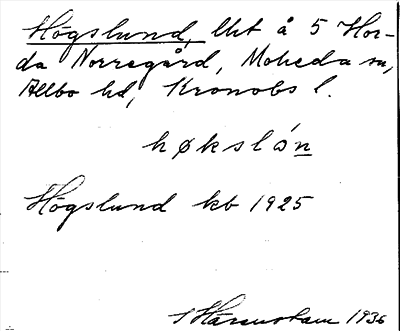 Högslund, lht å 5 Hor-
da Norregård, Moheda sn,
Allbo hd, Kronobs l.
høkslón
Högslund kb 1925
1936